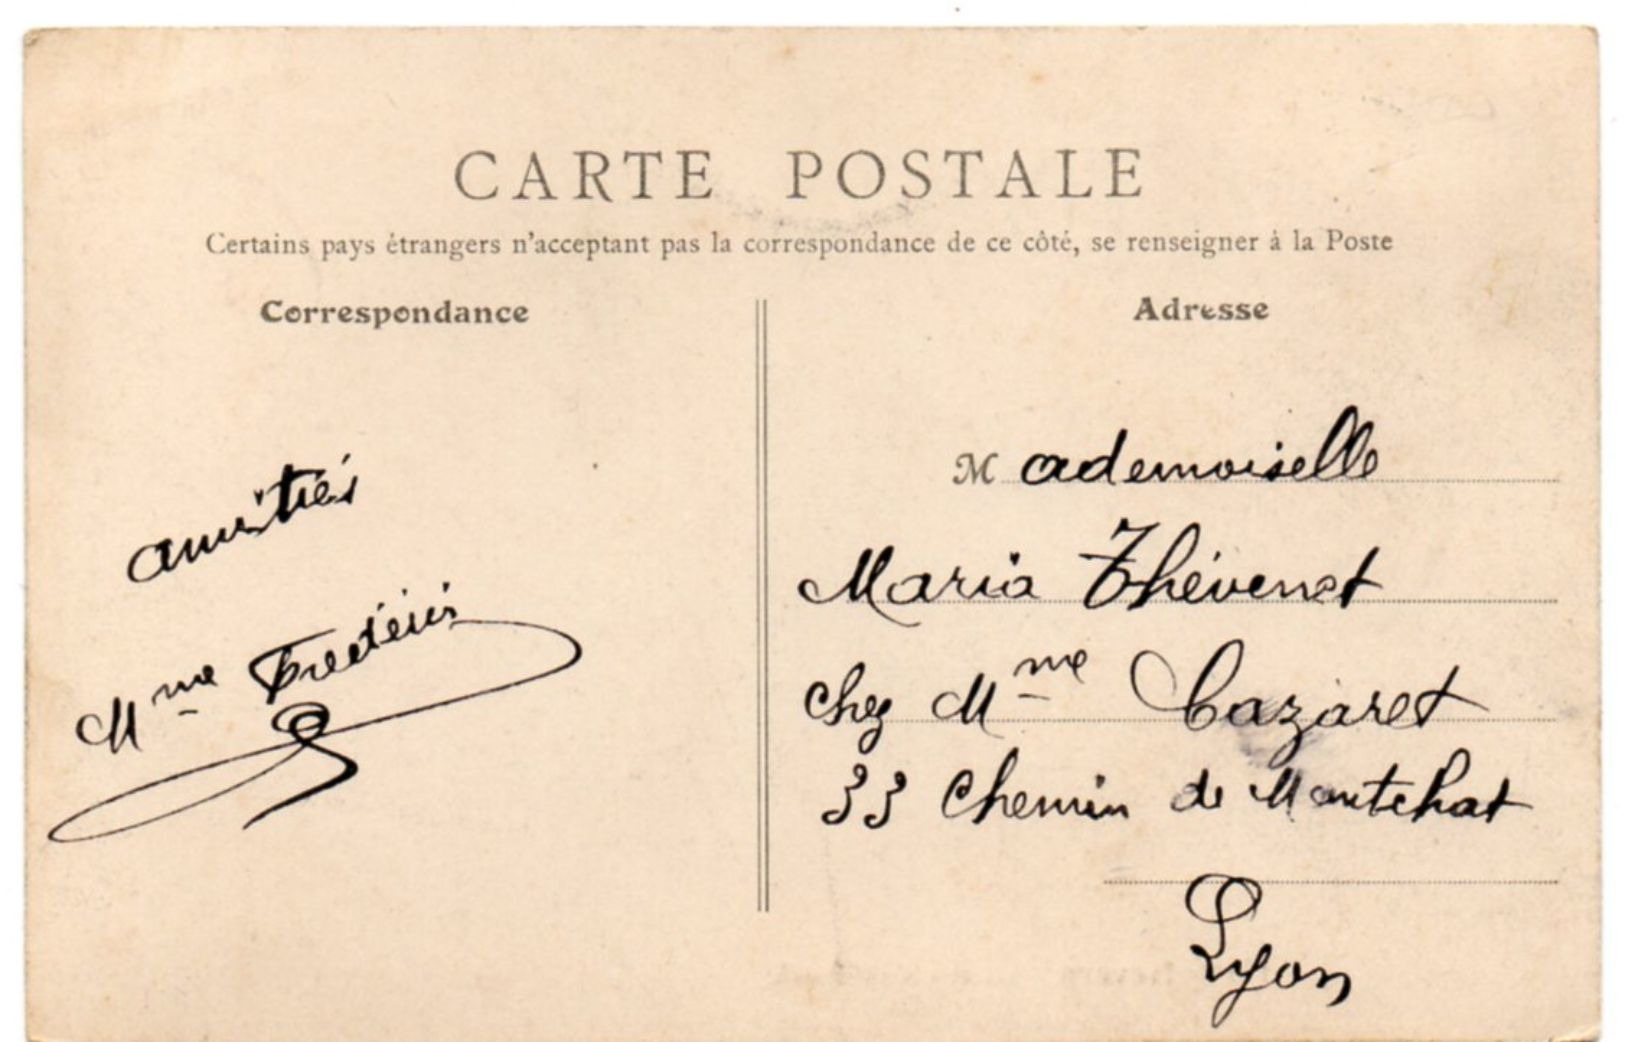 CARTE POSTALE
Certains pays étrangers n'acceptant pas la correspondance de ce côté, se renseigner à la Poste
Correspondance
amitiés
Mme
Adresse
Mademoiselle
Maria Thévenet
chez Mme Cazaret
33 Chemin de Montchat
Lyon